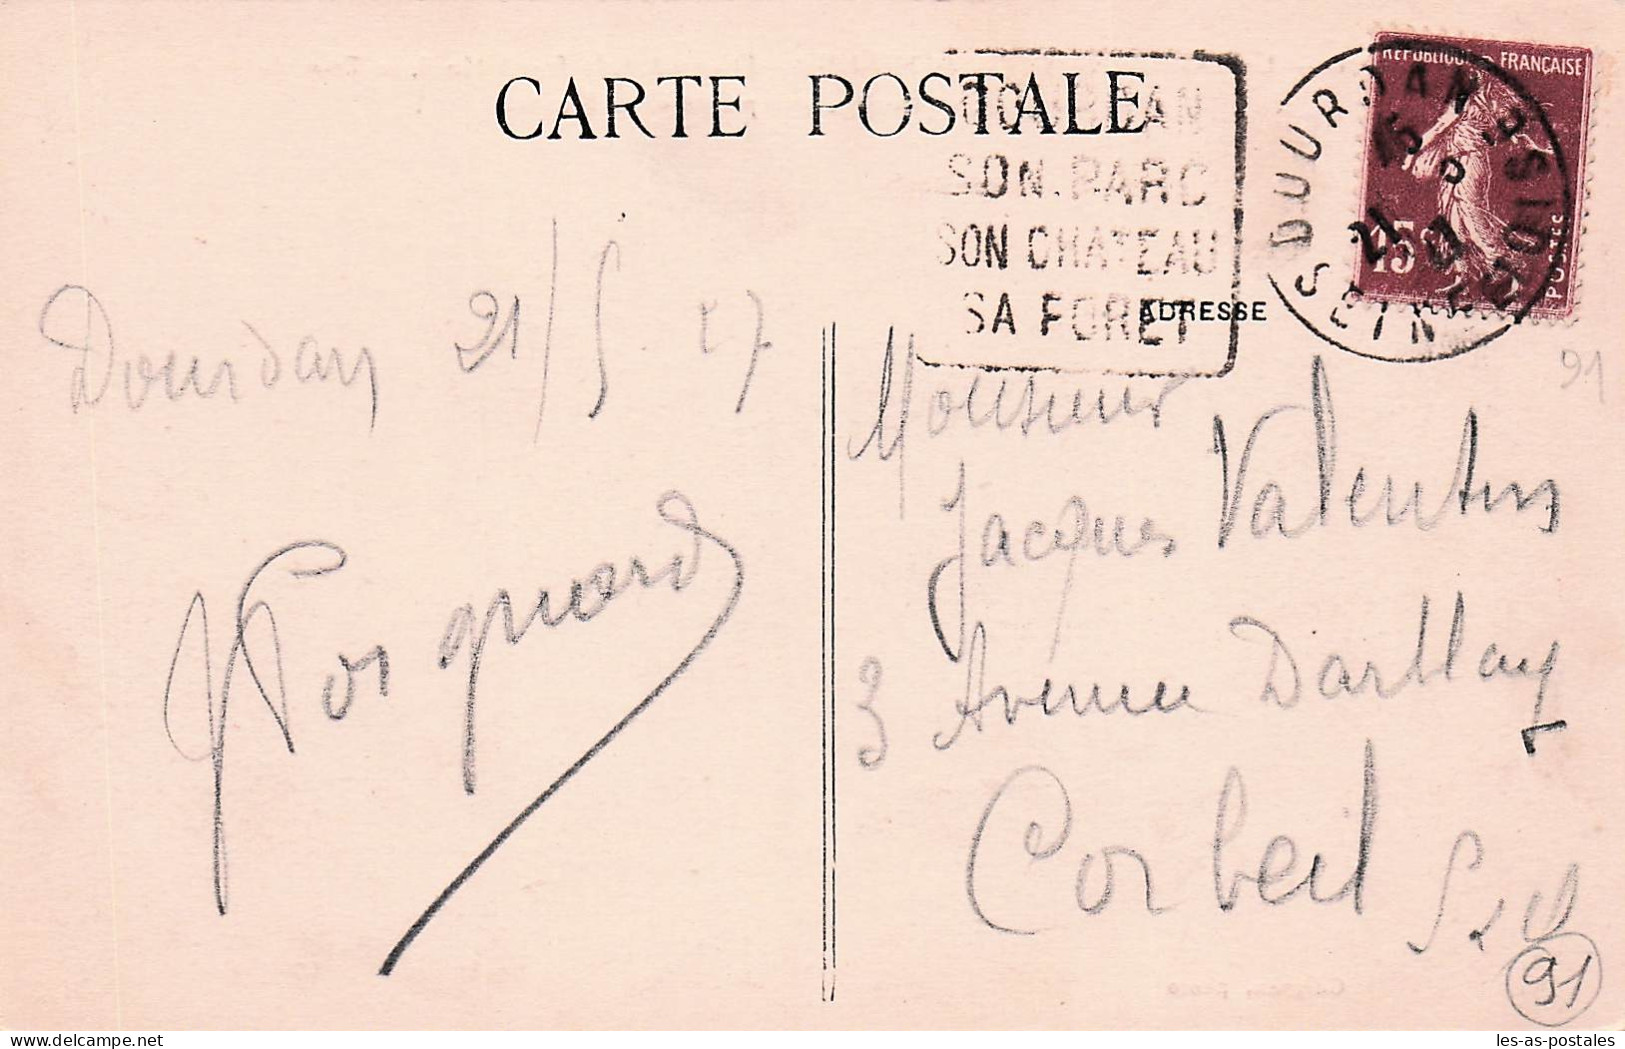 CARTE POSTALE
SON PARC
SON CHATEAU
SA FORET
DOURDAN
SEINE
OISE
21
RÉPUBLIQUE FRANÇAISE
15c
POSTES
ADRESSE
Dourdan 21/5 27
Monsieur
Jacques Valentin
3 Avenue Darblay
Corbeil
S et O
91
91
delcampe.net
les-as-postales